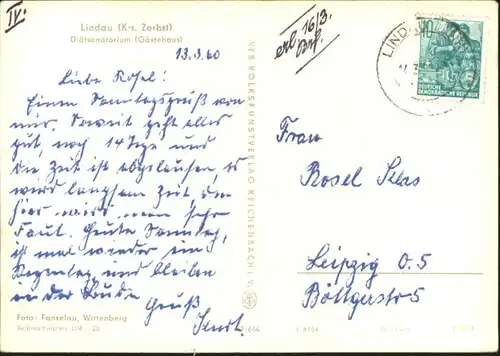 IV.
Lindau (Krs. Zerbst)
Diätsanatorium (Gästehaus)
13.3.60
Liebe Rosel!
Einen Sonntagsgruß von
mir. Soweit geht alles
gut, noch 14 Tage und
die Zeit ist abgelaufen, es
wird langsam Zeit, denn
hier wird man sehr
Faul. Heute Sonntag,
ist mal wieder ein
Regentag und bleiben
in der Bude.
Gruß
Kurt.
Foto: Fanselau, Wittenberg
VEB VOLKSKUNSTVERLAG REICHENBACH I. V.
erl 16/3.
LIND
10
DEUTSCHE
DEMOKRATISCHE REPUBLIK
Frau
Rosel Klas
Leipzig O. 5
Böttgerstr 5